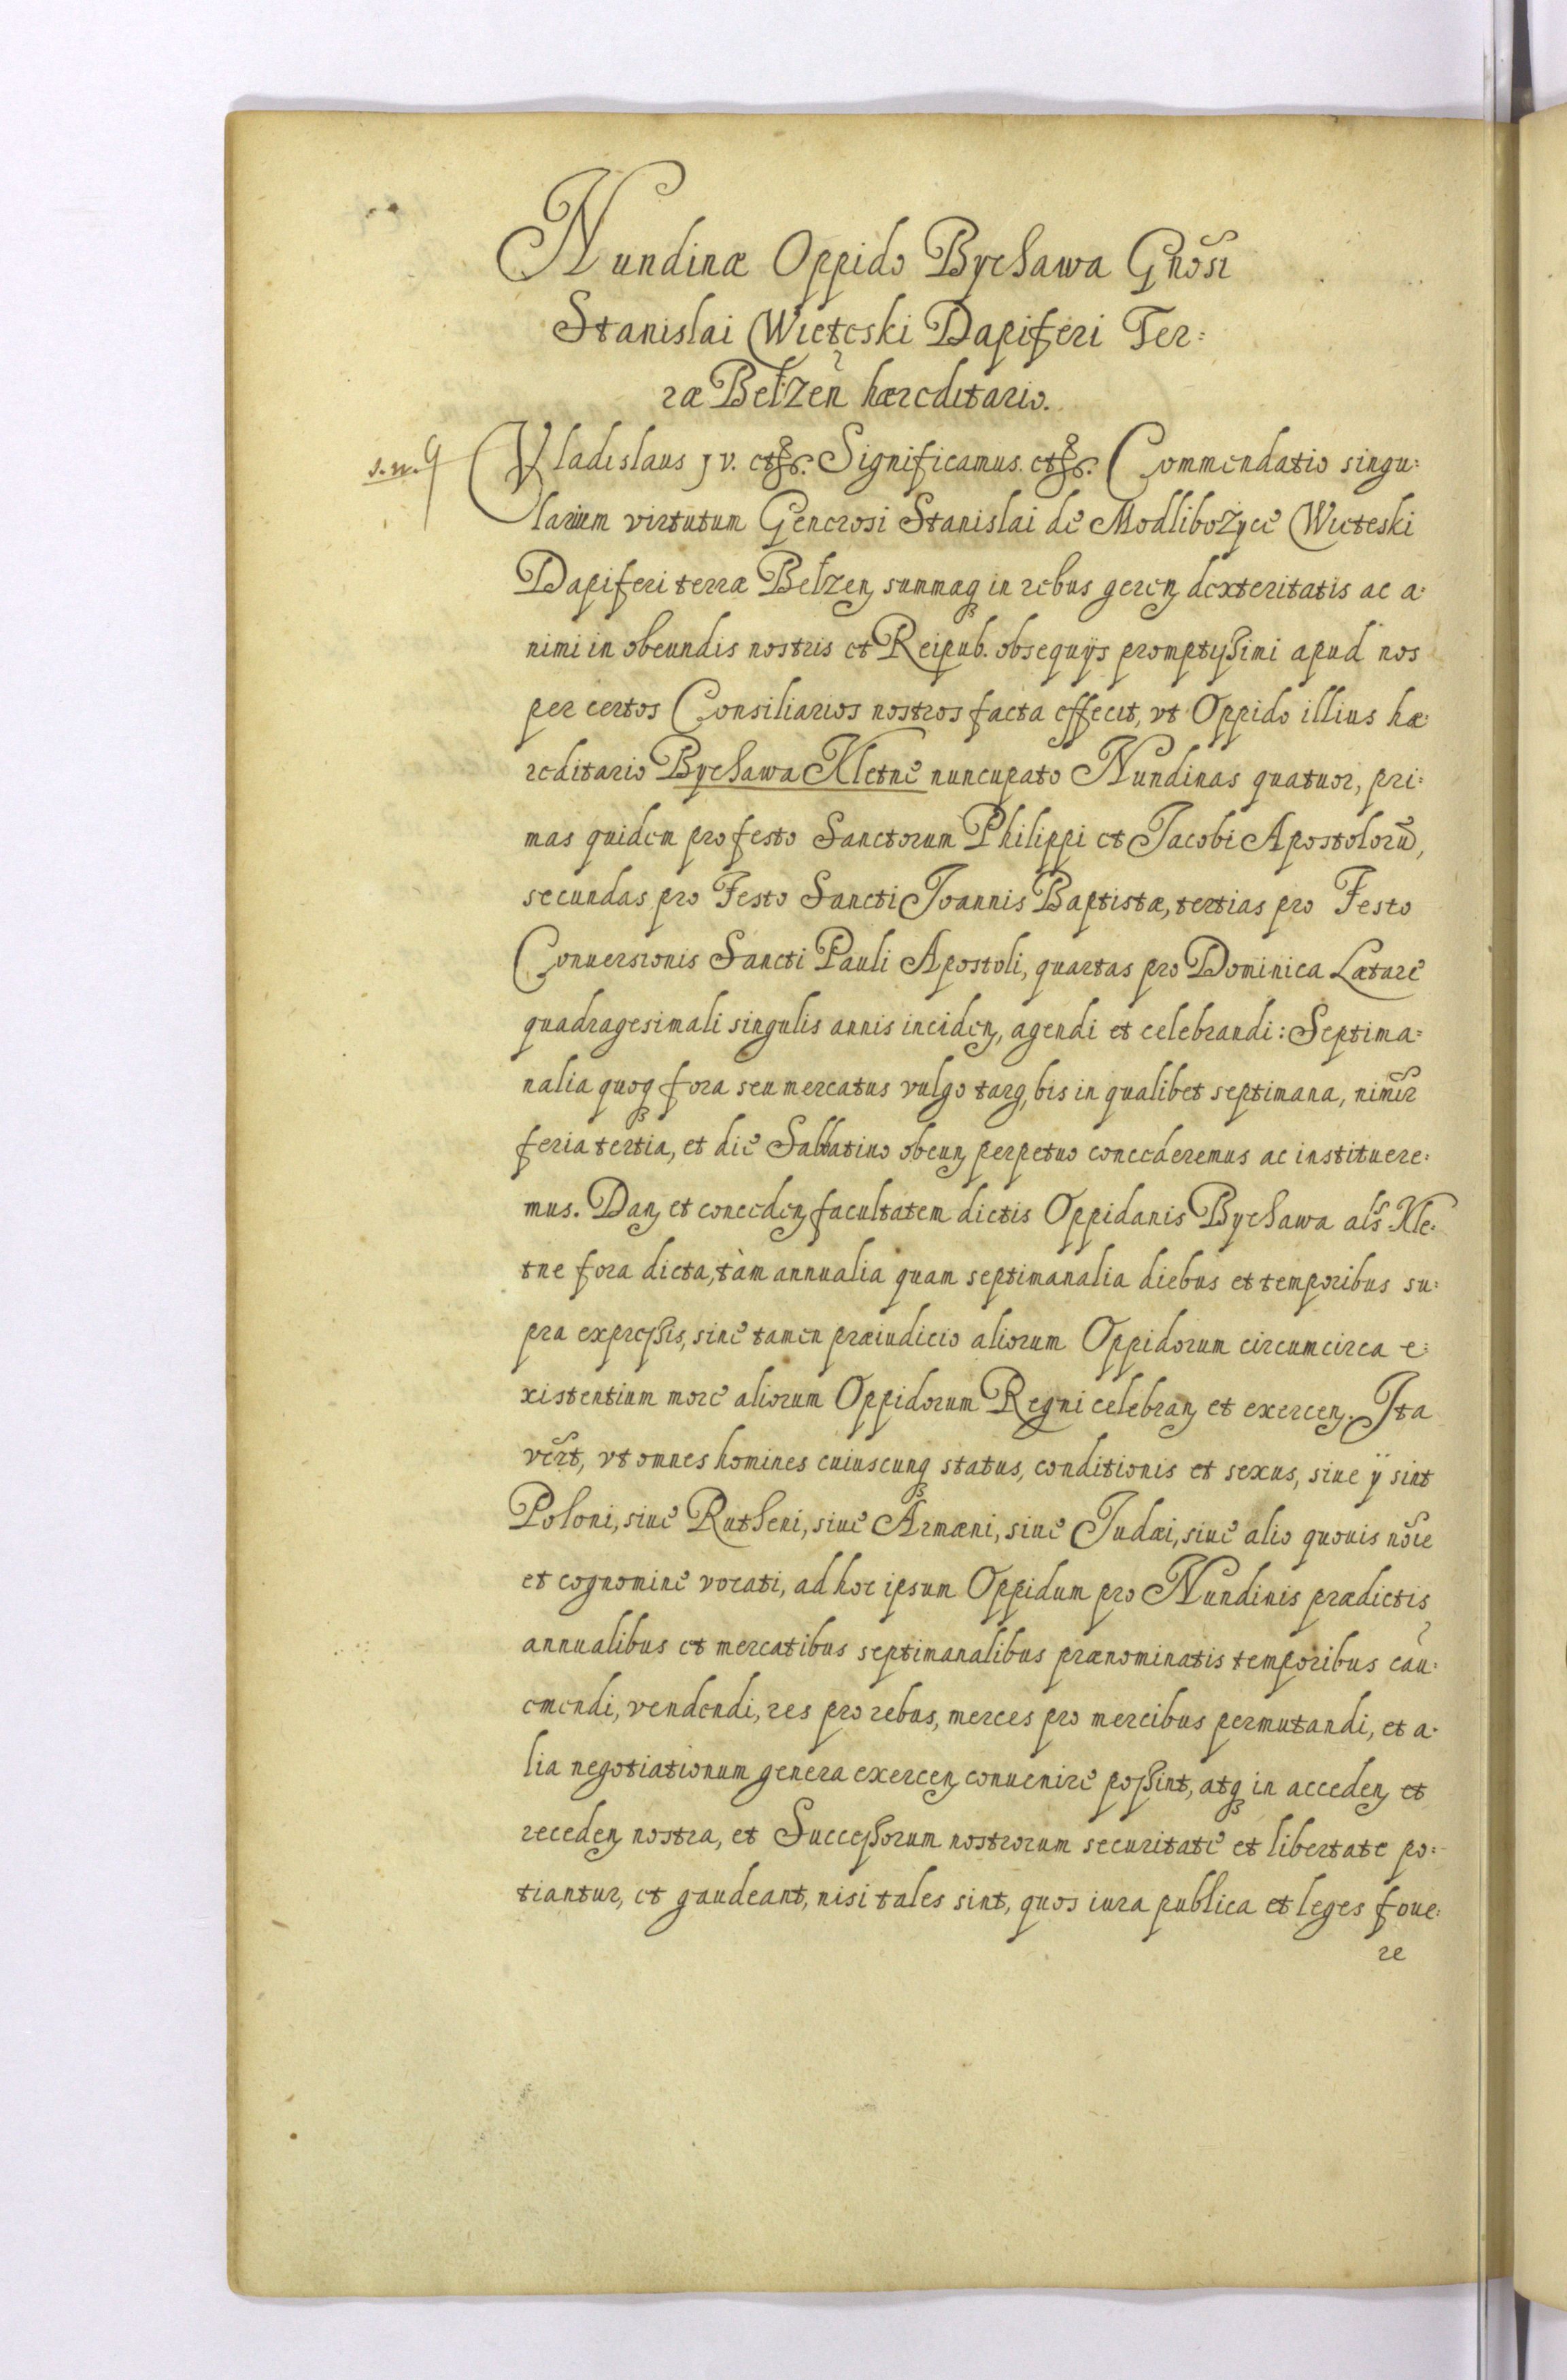 Nundinæ Oppido Bychawa Gnõsi
Stanislai Wieteski Dapiferi Ter:
ræ Bełzeñ hæreditario.
Vladislaus IV. etc. Significamus. etc. Commendatio singu:
larium virtutum Generosi Stanislai de Modlibożyce Wieteski
Dapiferi terræ Bełzeń summaq́ in rebus gereń dexteritatis ac a:
nimi in obeundis nostris et Reipub. obsequijs promptyßimi apud nos
per certos Consiliarios nostros facta effecit, vt Oppido illius hæ:
reditario Bychawa Kletne nuncupato Nundinas quatuor, pri:
mas quidem pro festo Sanctorum Philippi et Jacobi Apostolorũ,
secundas pro Festo Sancti Joannis Baptistæ, tertias pro Festo
Conuersionis Sancti Pauli Apostoli, quartas pro Dominica Lætare
quadragesimali singulis annis incideń, agendi et celebrandi: Septima:
nalia quoq́ fora seu mercatus vulgo targ, bis in qualibet septimana, nimir̃
feria tertia, et die Sabbatino obeuń perpetuo concederemus ac instituere:
mus. Dań et concedeń facultatem dictis Oppidanis Bychawa als Kle:
tne fora dicta, tàm annualia quam septimanalia diebus et temporibus su:
pra expreßis, sine tamen præiudicio aliorum Oppidorum circumcirca e:
xistentium more aliorum Oppidorum Regni celebrań et exerceń. Ita
vert̃, vt omnes homines cuiuscunq́ status, conditionis et sexus, siue ÿ sint
Poloni, siue Rutheni, siue Armæni, siue Judæi, siue alio quouis nõie
et cognomine vocati, ad hoc ipsum Oppidum pro Nundinis prædictis
annualibus et mercatibus septimanalibus prænominatis temporibus cau:
emendi, vendendi, res pro rebus, merces pro mercibus permutandi, et a:
lia negotiationum genera exerceń conuenire poßint, atq́ in accedeń et
recedeń nostra, et Succeßorum nostrorum securitate et libertate po:
tiantur, et gaudeant, nisi tales sint, quos iura publica et leges foue:
re